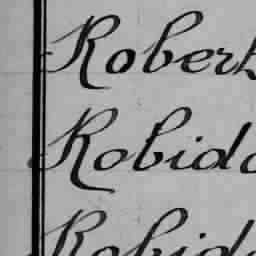 Robert
Robido
Robido